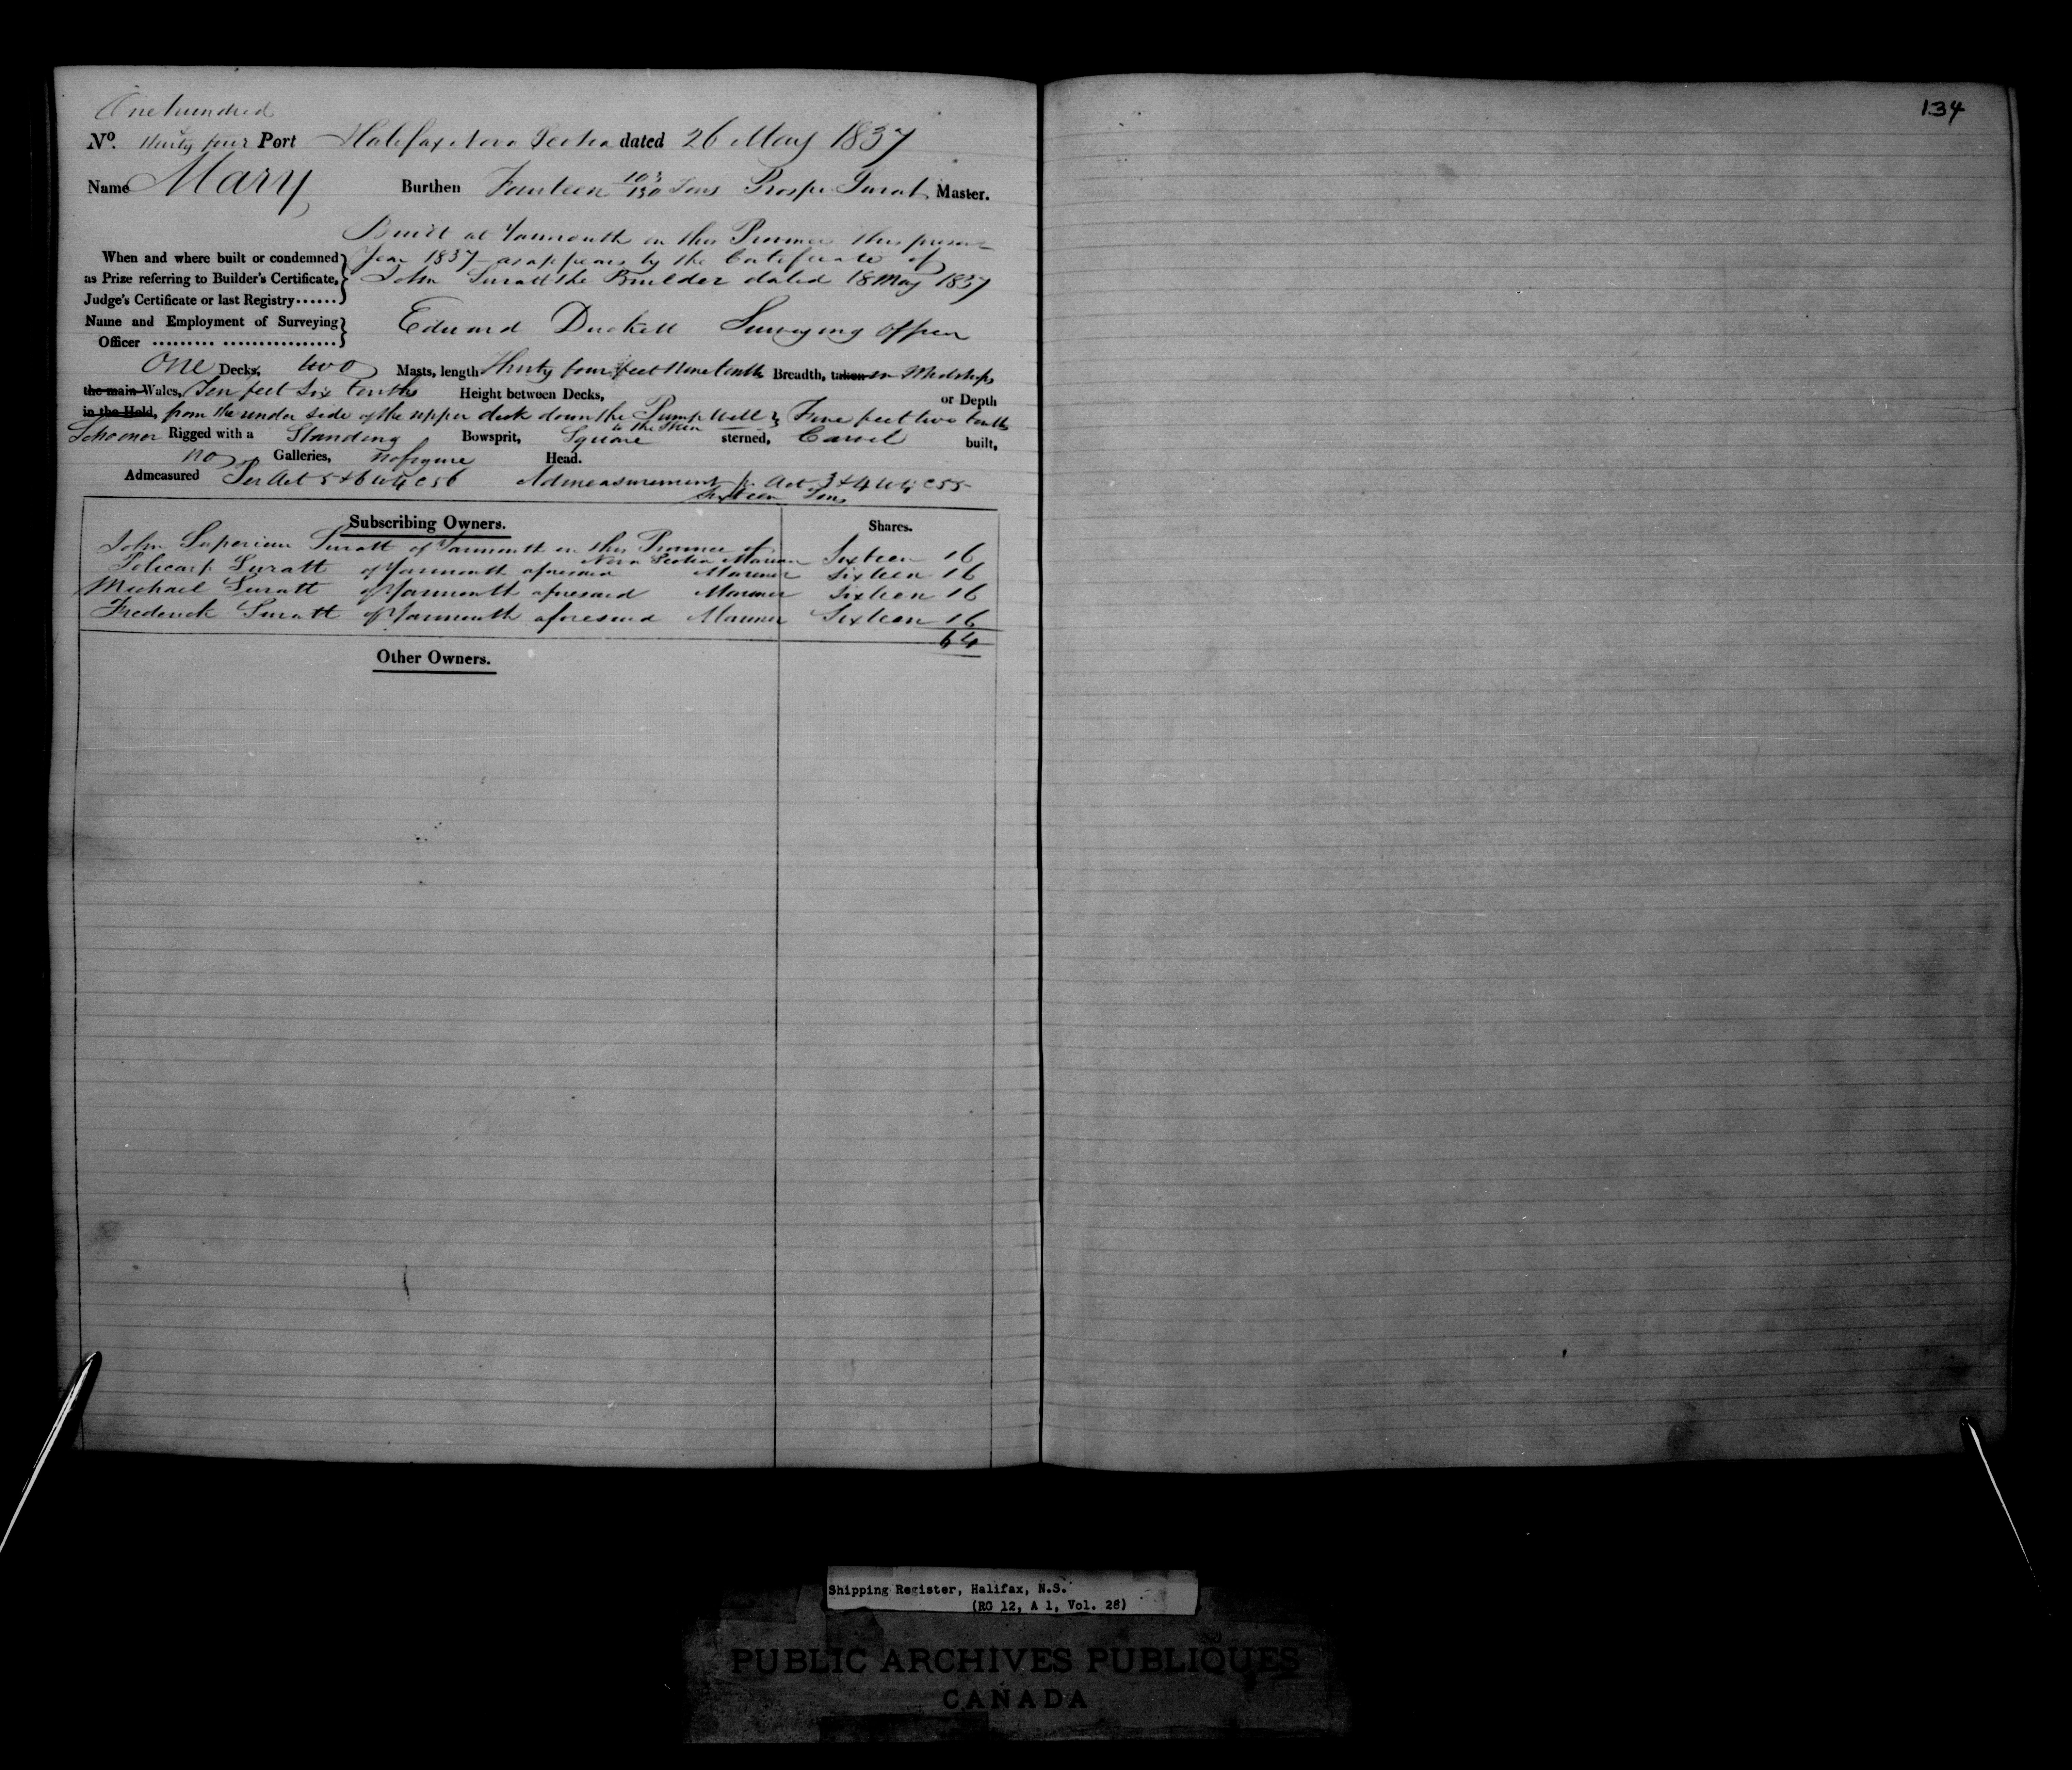 One hundred
No. thirty four Port Halifax Nova Scotia dated 26 May 1837
Name Mary Burthen Fourteen 103/130 Tons Prospr Surat Master.
Built at Yarmouth in this Province this present
When and where built or condemned Year 1837 as appears by the Certificate of
as Prize referring to Builder's Certificate, John Suratt the Builder dated 18 May 1837
Judge's Certificate or last Registry......
Name and Employment of Surveying Edward Duckett Surveying Officer
Officer ......... ................
One Decks, two Masts, length Thirty four feet Nine tenths Breadth, taken in Midships
the main Wales, Ten feet Six tenths Height between Decks, or Depth
in the Hold, from the under side of the upper deck down the Pump Well } Five feet two tenths
to the Skin
Schooner Rigged with a Standing Bowsprit, Square sterned, Carvel built,
no Galleries, no figure Head.
Admeasured Per Act 5 & 6 W 4 C 56 Admeasurement pr Act 3 & 4 W 4 C 55
Sixteen Tons
Subscribing Owners. Shares.
John Suratt of Yarmouth in this Province of
Nova Scotia Mariner Sixteen 16
Policarp Suratt of Yarmouth aforesaid Mariner Sixteen 16
Michael Suratt of Yarmouth aforesaid Mariner Sixteen 16
Frederick Suratt of Yarmouth aforesaid Mariner Sixteen 16
64
Other Owners.
134
Shipping Register, Halifax, N.S.
(RG 12, A 1, Vol. 28)
PUBLIC ARCHIVES PUBLIQUES
CANADA